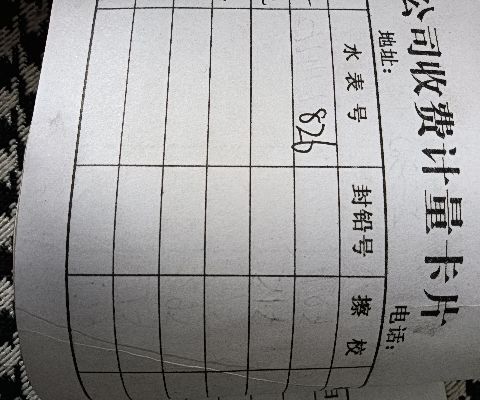 公司收费计量卡片
地址: 电话:
水表号 封铅号 擦校
826